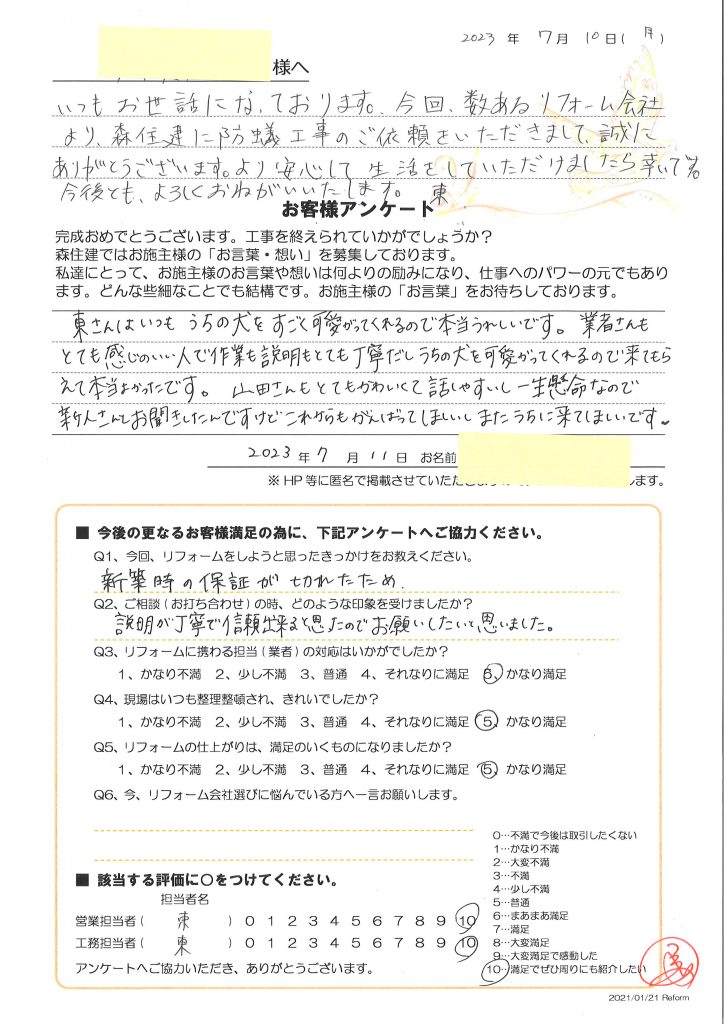 2023 年 7月 10日(月)
様へ
いつもお世話になっております。今回、数あるリフォーム会社
より、森住建に防蟻工事のご依頼をいただきまして、誠に
ありがとうございます。より安心して生活をしていただけましたら幸いです。
今後とも、よろしくおねがいいたします。 東
お客様アンケート
完成おめでとうございます。工事を終えられていかがでしょうか?
森住建ではお施主様の「お言葉・想い」を募集しております。
私達にとって、お施主様のお言葉や想いは何よりの励みになり、仕事へのパワーの元でもあり
ます。どんな些細なことでも結構です。お施主様の「お言葉」をお待ちしております。
東さんはいつもうちの犬をすごく可愛がってくれるので本当うれしいです。業者さんも
とても感じのいい人で作業も説明もとても丁寧だしうちの犬を可愛がってくれるので来てもら
えて本当よかったです。 山田さんもとてもかわいくて話しやすいし一生懸命なので
新人さんとお聞きしたんですけどこれからもがんばってほしいしまたうちに来てほしいです。
2023 年 7 月 11 日 お名前
※HP等に匿名で掲載させていただ
します。
■ 今後の更なるお客様満足の為に、下記アンケートへご協力ください。
Q1、今回、リフォームをしようと思ったきっかけをお教えください。
新築時の保証が切れたため.
Q2、ご相談(お打ち合わせ)の時、どのような印象を受けましたか?
説明が丁寧で信頼出来ると思ったのでお願いしたいと思いました。
Q3、リフォームに携わる担当(業者)の対応はいかがでしたか?
1、かなり不満 2、少し不満 3、普通 4、それなりに満足 5、かなり満足
Q4、現場はいつも整理整頓され、きれいでしたか?
1、かなり不満 2、少し不満 3、普通 4、それなりに満足 5、かなり満足
Q5、リフォームの仕上がりは、満足のいくものになりましたか?
1、かなり不満 2、少し不満 3、普通 4、それなりに満足 5、かなり満足
Q6、今、リフォーム会社選びに悩んでいる方へ一言お願いします。
■ 該当する評価に〇をつけてください。
担当者名
営業担当者( 東 ) 0 1 2 3 4 5 6 7 8 9 10
工務担当者( 東 ) 0 1 2 3 4 5 6 7 8 9 10
アンケートへご協力いただき、ありがとうございます。
0…不満で今後は取引したくない
1…かなり不満
2…大変不満
3…不満
4…少し不満
5…普通
6…まあまあ満足
7…満足
8…大変満足
9…大変満足で感動した
10…満足でぜひ周りにも紹介したい
2021/01/21 Reform